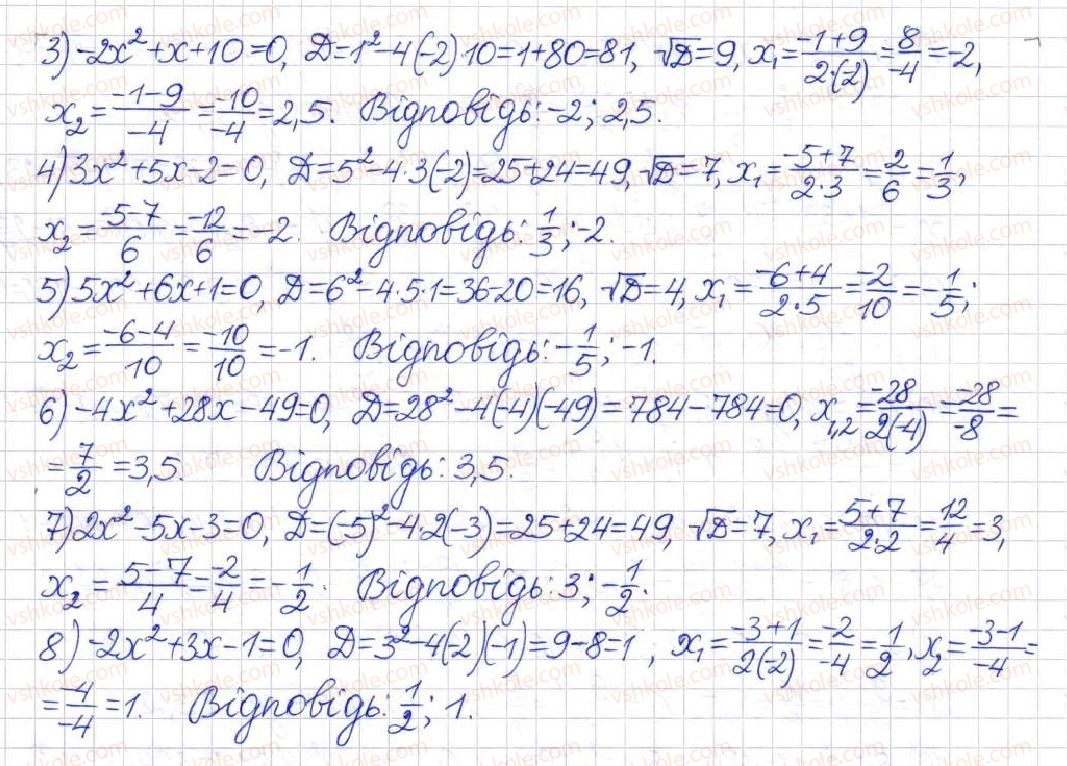 3) -2x²+x+10=0, D=1²-4(-2)·10=1+80=81, √D=9, x₁=(-1+9)/(2·(-2))=8/-4=-2,
x₂=(-1-9)/-4=-10/-4=2,5. Відповідь: -2; 2,5.
4) 3x²+5x-2=0, D=5²-4·3(-2)=25+24=49, √D=7, x₁=(-5+7)/(2·3)=2/6=1/3,
x₂=(-5-7)/6=-12/6=-2. Відповідь: 1/3; -2.
5) 5x²+6x+1=0, D=6²-4·5·1=36-20=16, √D=4, x₁=(-6+4)/(2·5)=-2/10=-1/5;
x₂=(-6-4)/10=-10/10=-1. Відповідь: -1/5; -1.
6) -4x²+28x-49=0, D=28²-4(-4)(-49)=784-784=0, x₁,₂=-28/2(-4)=-28/-8=
=7/2=3,5. Відповідь: 3,5.
7) 2x²-5x-3=0, D=(-5)²-4·2(-3)=25+24=49, √D=7, x₁=(5+7)/(2·2)=12/4=3,
x₂=(5-7)/4=-2/4=-1/2. Відповідь: 3; -1/2.
8) -2x²+3x-1=0, D=3²-4(-2)(-1)=9-8=1, x₁=(-3+1)/2(-2)=-2/-4=1/2, x₂=(-3-1)/-4=
=-4/-4=1. Відповідь: 1/2; 1.